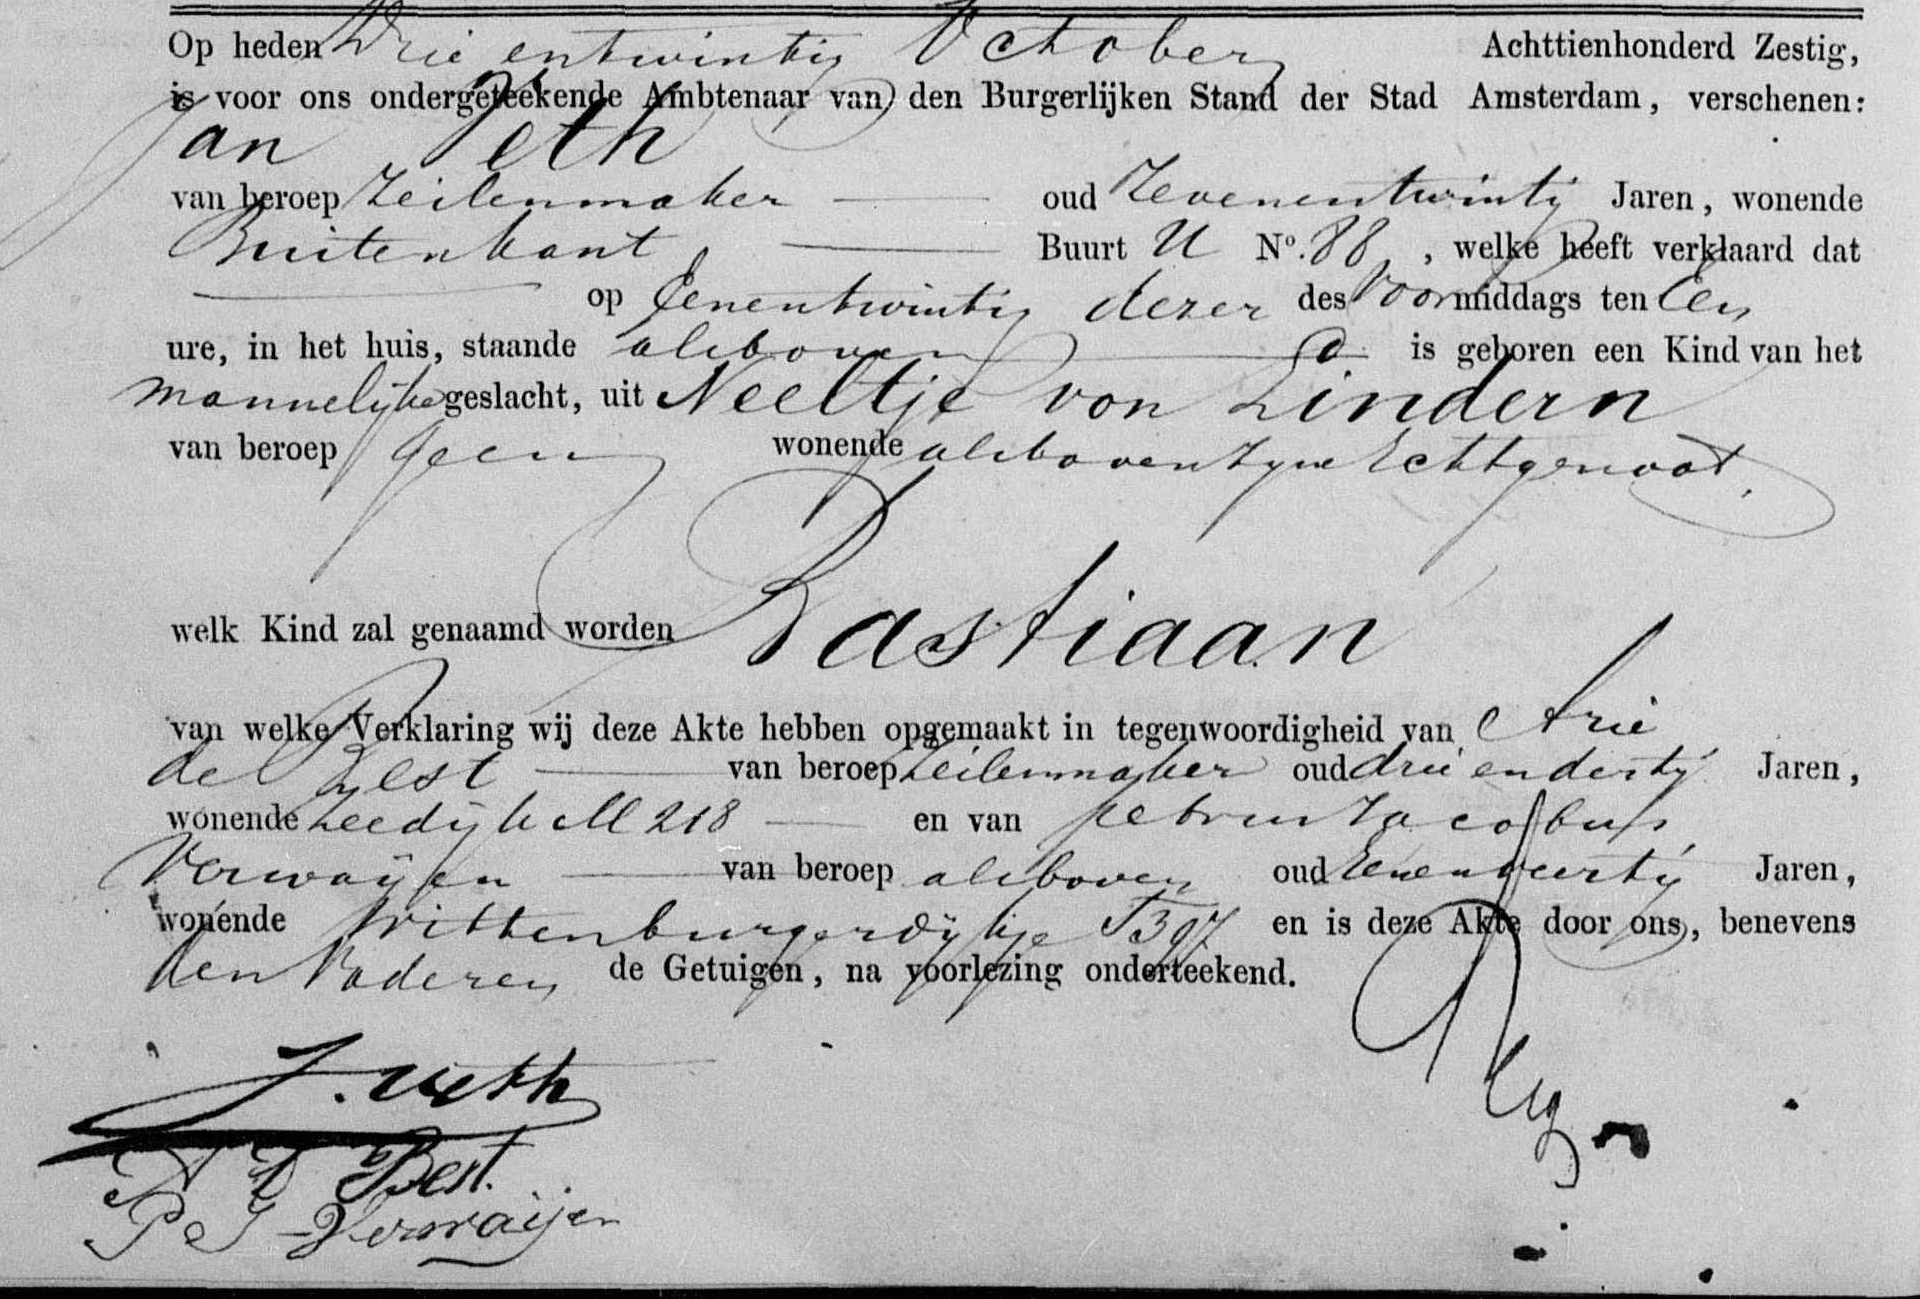 Op heden Drieentwintig October Achttienhonderd Zestig,
is voor ons ondergeteekende Ambtenaar van den Burgerlijken Stand der Stad Amsterdam, verschenen:
Jan Veth
van beroep Zeilenmaker oud Zevenentwintig Jaren, wonende
Buitenkant Buurt U No. 88, welke heeft verklaard dat
op Eenentwintig dezer des Voormiddags ten Een
ure, in het huis, staande alsboven is geboren een Kind van het
mannelijke geslacht, uit Neeltje von Lindern
van beroep geen wonende alsboven Zyne Echtgenoot.
welk Kind zal genaamd worden Bastiaan
van welke Verklaring wij deze Akte hebben opgemaakt in tegenwoordigheid van Arie
de Best van beroep Zeilenmaker oud drieendertig Jaren,
wonende Zeedijk M 218 en van Petrus Jacobus
Verwaijen van beroep alsboven oud Eenenveertig Jaren,
wonende Wittenburgerdijkje T397 en is deze Akte door ons, benevens
den Vader en de Getuigen, na voorlezing onderteekend.
J. Veth
A D Best.
P J Verwaijen